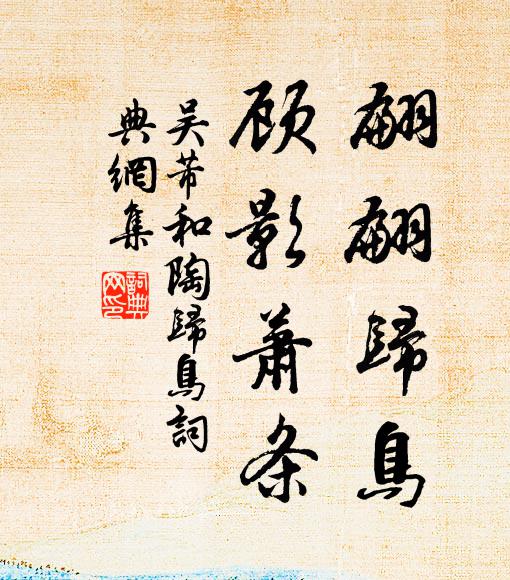 翩翩歸鳥
顾影蕭条
吴芾和陶歸鳥詞
典網集
詞典
网印